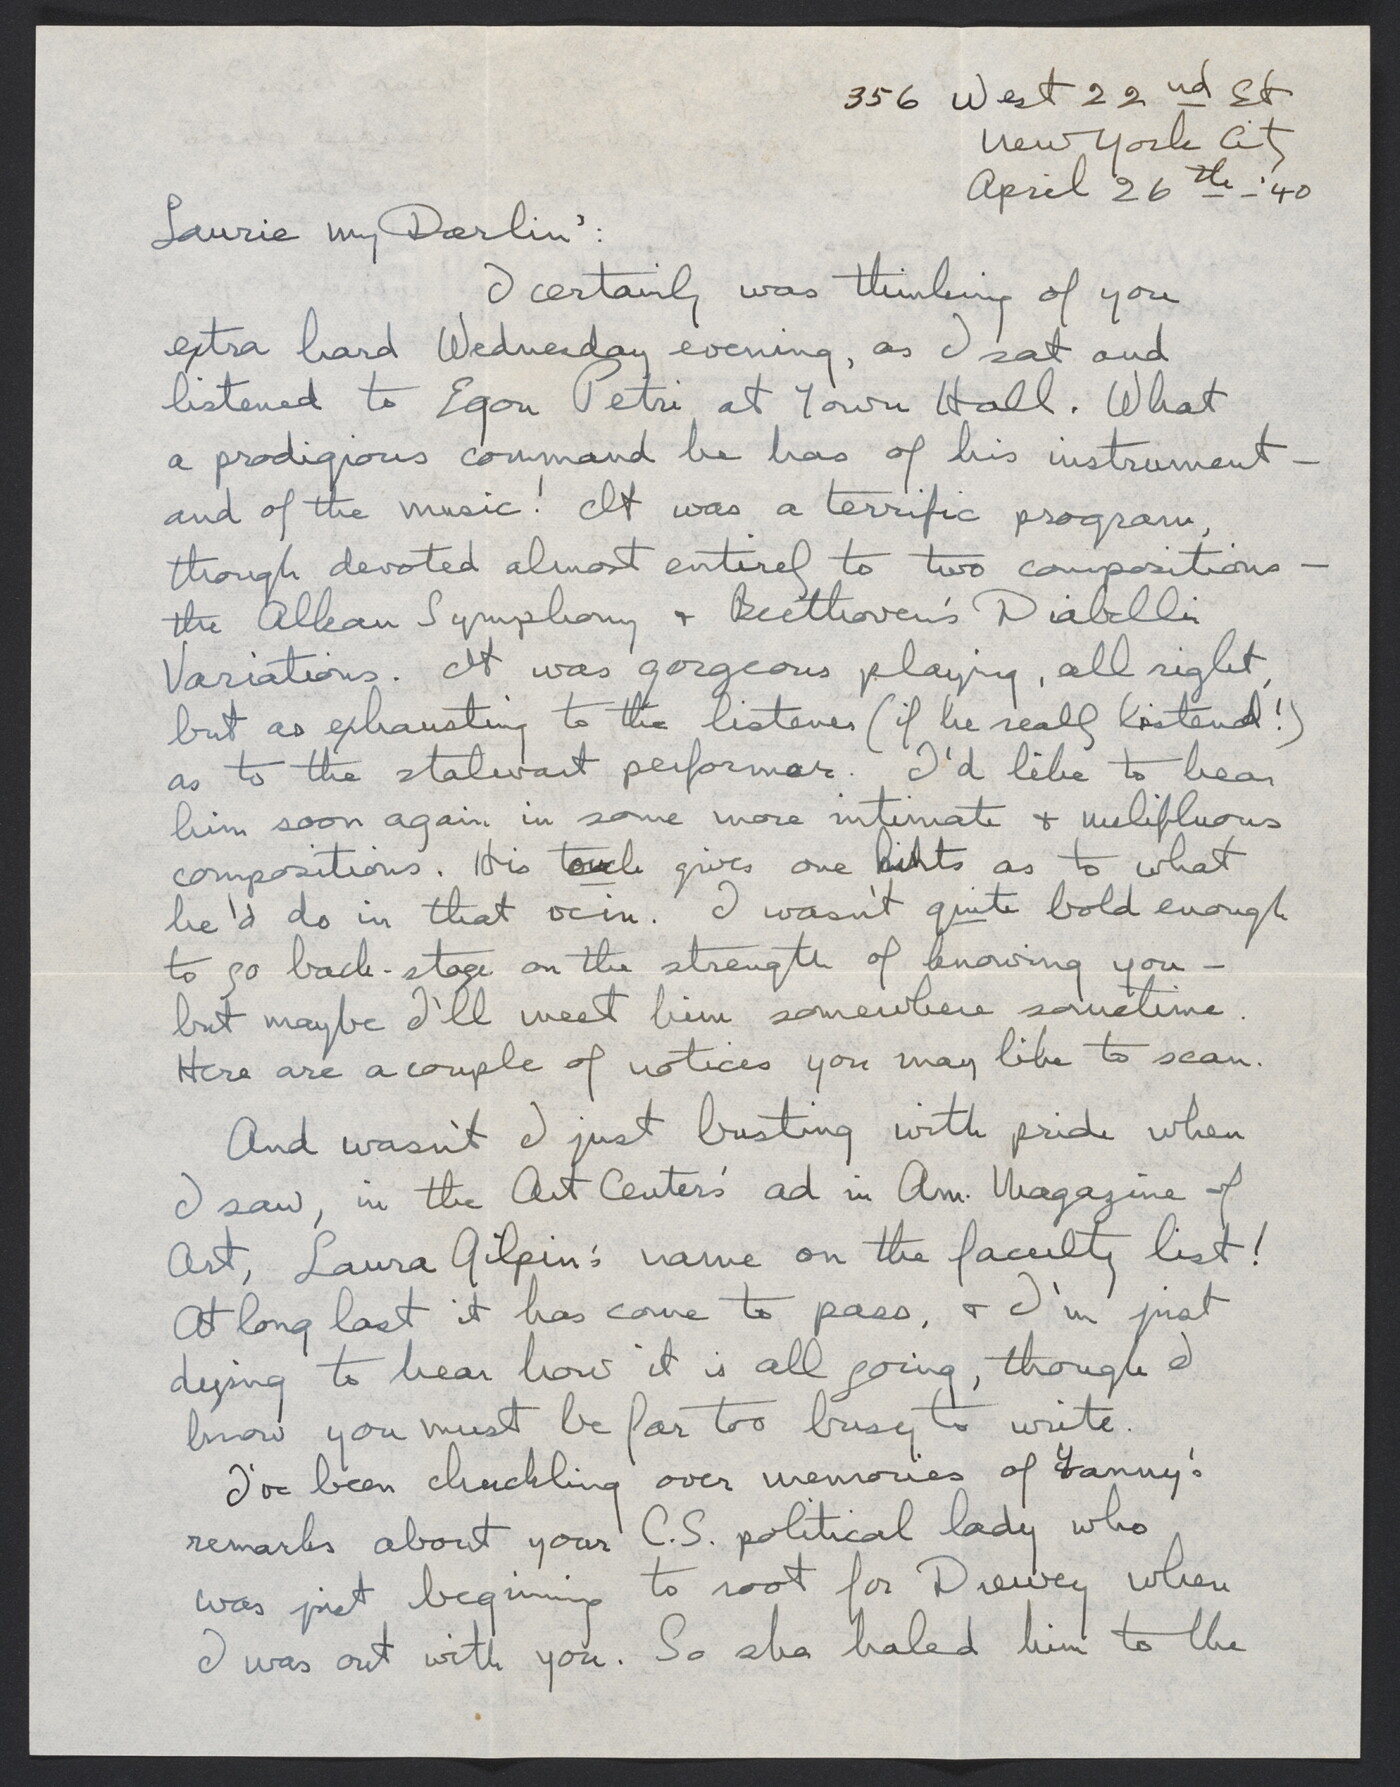 356 West 22nd St
New York City
April 26th - '40
Laurie my Darlin':
I certainly was thinking of you
extra hard Wednesday evening, as I sat and
listened to Egon Petri at Town Hall. What
a prodigious command he has of his instrument -
and of the music! It was a terrific program,
though devoted almost entirely to two compositions -
the Alkan Symphony + Beethoven's Diabelli
Variations. It was gorgeous playing, all right,
but as exhausting to the listener (if he really listened!)
as to the stalwart performer. I'd like to hear
him soon again in some more intimate + melifluous
compositions. His touch gives one hints as to what
he'd do in that vein. I wasn't quite bold enough
to go back-stage on the strength of knowing you -
but maybe I'll meet him somewhere sometime.
Here are a couple of notices you may like to scan.
And wasn't I just busting with pride when
I saw, in the Art Center's ad in Am. Magazine of
Art, Laura Gilpin's name on the faculty list!
At long last it has come to pass, + I'm just
dying to hear how it is all going, though I
know you must be far too busy to write.
I've been chuckling over memories of Fanny's
remarks about your C.S. political lady who
was just begining to root for Dewey when
I was out with you. So she haled him to the